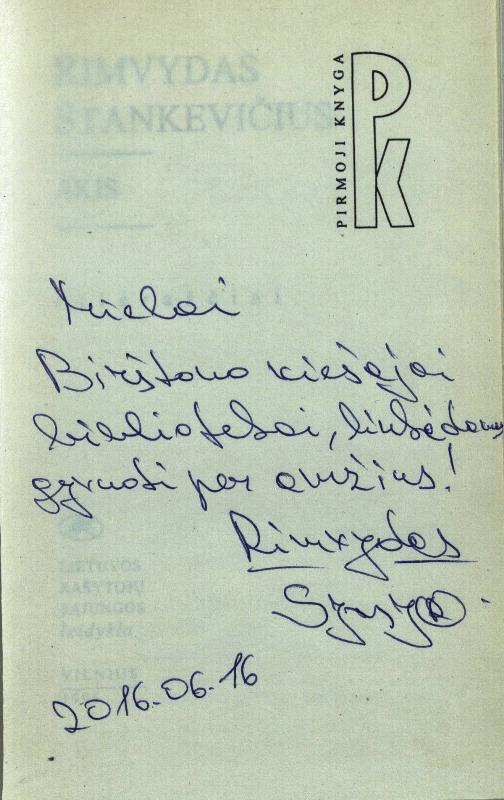 PIRMOJI KNYGA
PK
RIMVYDAS
STANKEVIČIUS
AKIS
Mielai
Birštono viešajai
bibliotekai, linkėdamas
gyvuoti per amžius!
Rimvydas
LIETUVOS
RAŠYTOJŲ
SĄJUNGOS
leidykla
VILNIUS
2016.06.16